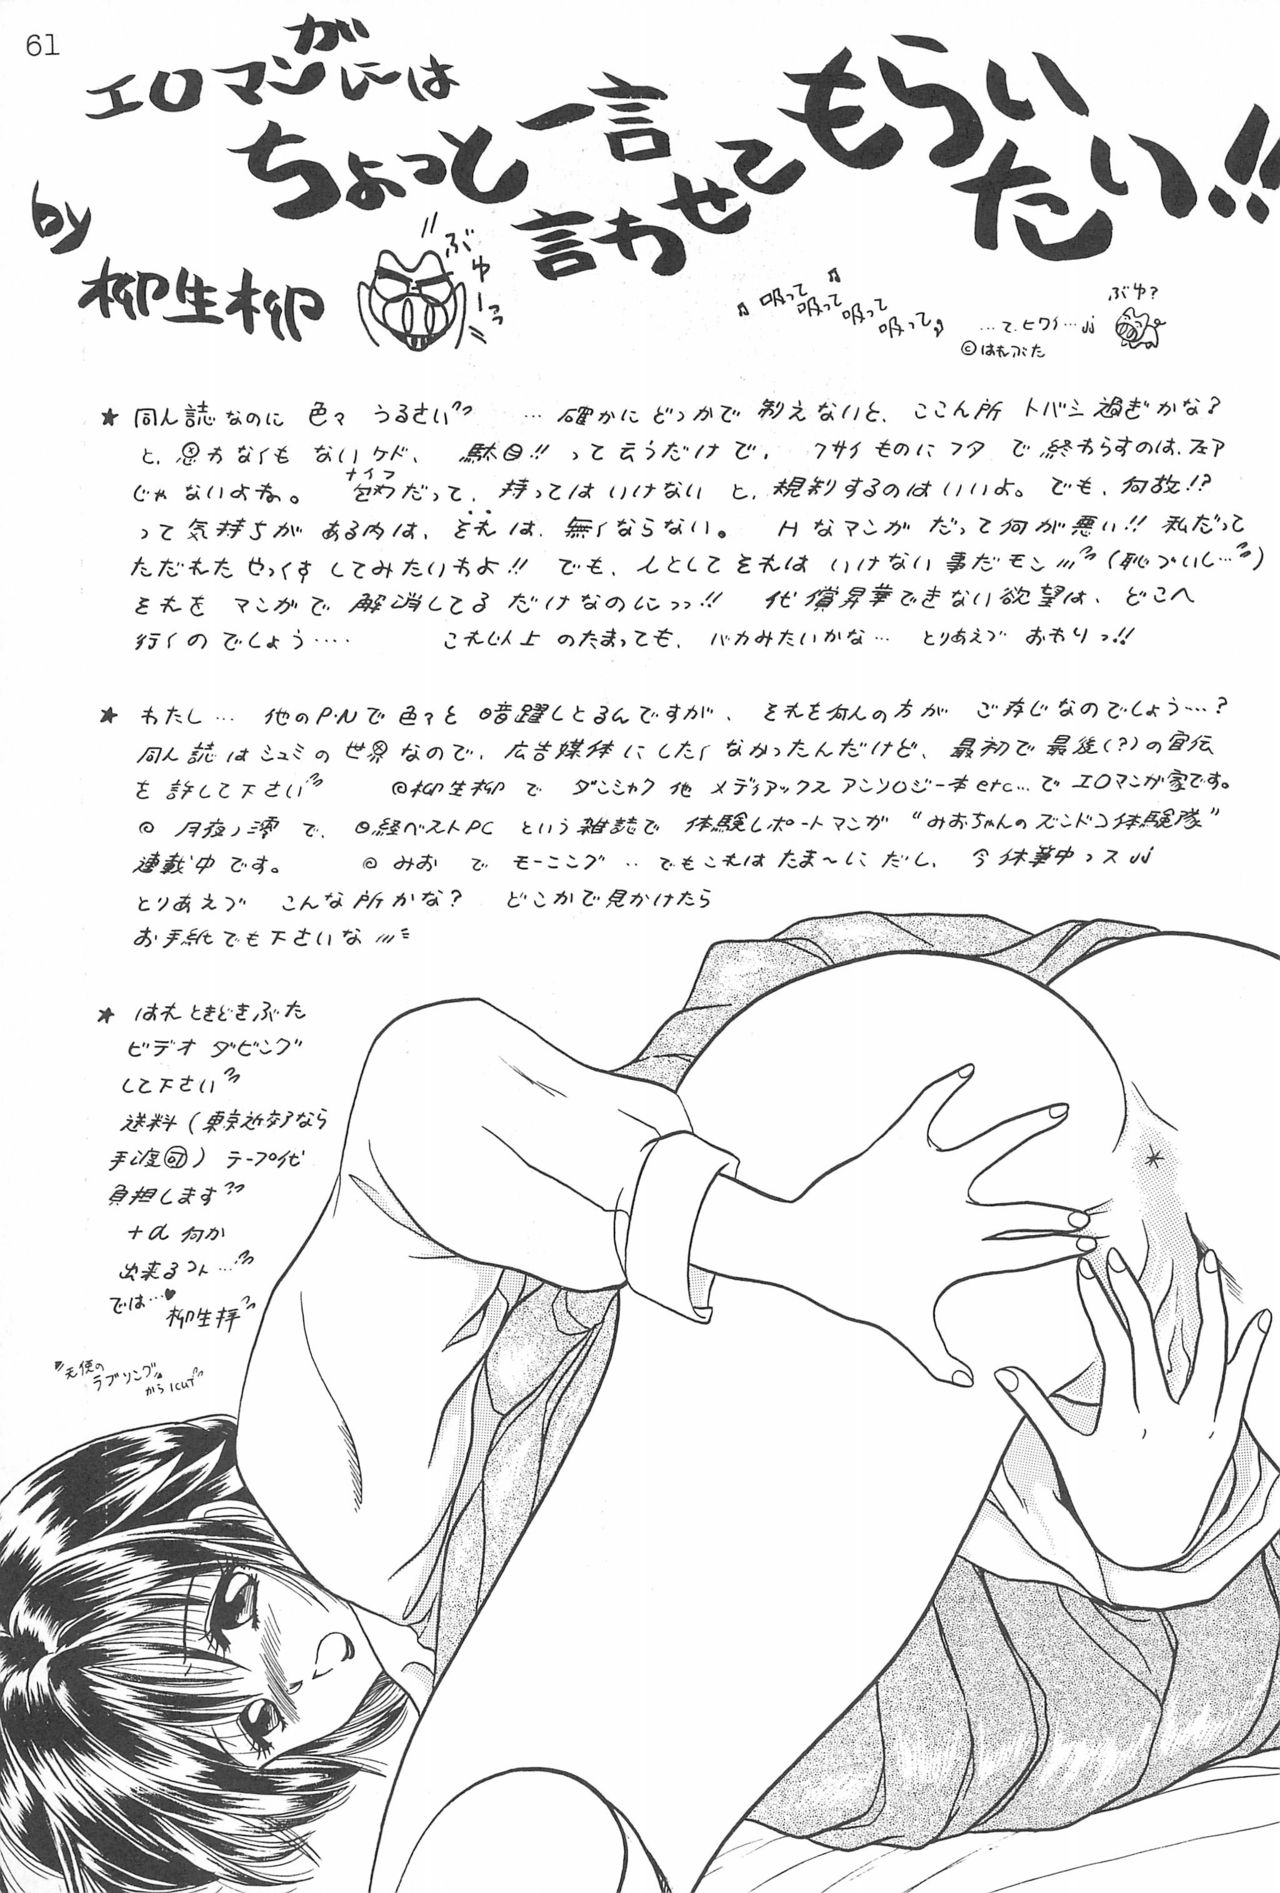 61
エロマンガにーは
ちょっと一言
言わせて
もらい
たい!!
by
柳生柳
ぶゅーっ
♪吸って
吸って
吸って
吸って♪
…て、ヒワイ…
ぶゅ?
©はれぶた
★ 同人誌なのに 色々 うるさい …確かにどっかで 制えないと、ここん所 トバシ過ぎかな?
と、思わなくも ないケド、 駄目!! って云うだけで、 クサイものにフタ で終わらすのは、フェア
じゃないよね。 ナイフだって、持ってはいけないと、規制するのはいいよ。でも、何故!?
って気持ちが ある内は、それは、無くならない。 Hなマンガ だって何が悪い!! 私だって
ただれた せっくす してみたいわよ!! でも、人としてそれは いけない事だモン (恥づいし…)
それを マンガで 解消してる だけなのにっっ!! 代償昇華できない欲望は、どこへ
行くの でしょう…. これ以上 のたまっても、バカみたいかな… とりあえづ おわりっ!!
★ わたし… 他のP・Nで色々と 暗躍しとるんですが、それを何人の方が ご存じなのでしょう…?
同人誌はシュミの世界なので、広告媒体にしたくなかったんだけど、最初で最後(?)の宣伝
を許して下さい ◎柳生柳で ダンシャク他 メディアックス アンソロジー本etc…で エロマンガ家です。
◎ 月夜ノ澪で、日経ベストPC という雑誌で 体験レポートマンガ “みおちゃんのズンドコ体験隊”
連載中です。 ◎みお で モーニング ‥でもこれは たま〜にだし、今 休筆中っス
とりあえづ こんな所かな? どこかで見かけたら
お手紙でも下さいな
★ はれときどきぶた
ビデオ ダビング
して下さい
送料(東京近郊なら
手渡可) テープ代
負担します
+α 何か
出来るコト…
では…♥
柳生拝
天使の
ラブソング
から1cut